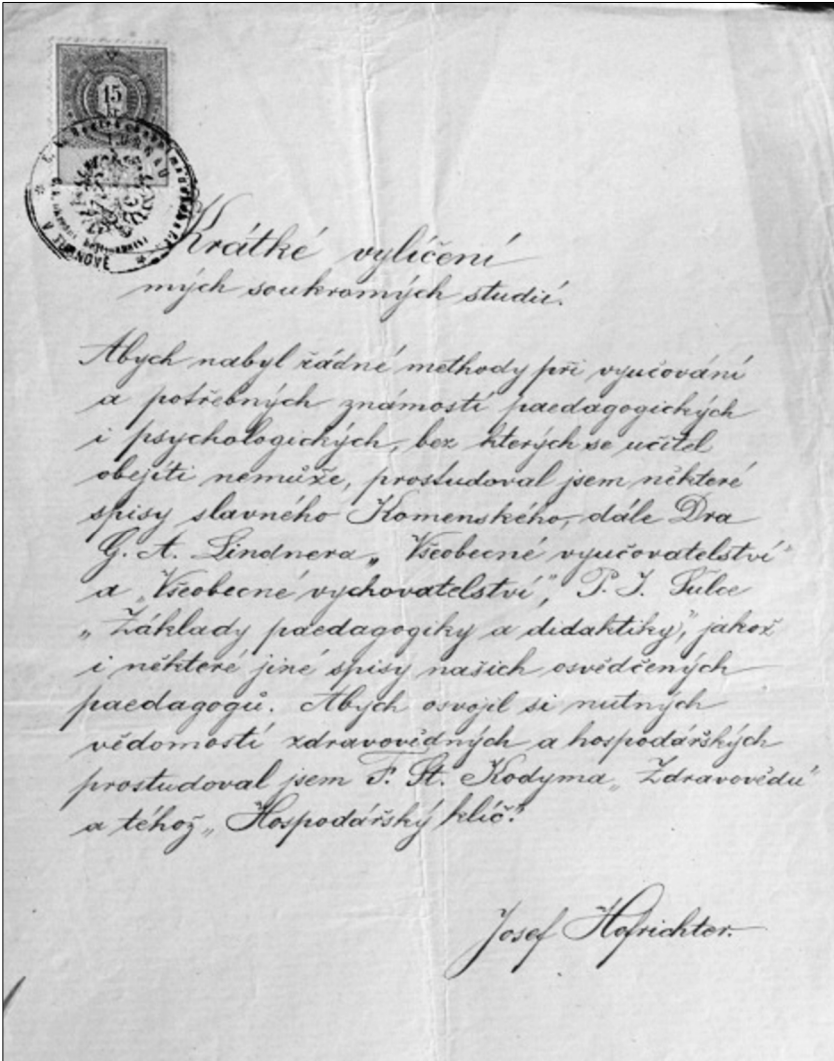 15
V TURNOVĚ
Krátké vylíčení
mých soukromých studií.
Abych nabyl řádné methody při vyučování
a potřebných známostí paedagogických
i psychologických, bez kterých se učitel
obejíti nemůže, prostudoval jsem některé
spisy slavného Komenského, dále Dra
G. A. Lindnera „Všeobecné vyučovatelství“
a „Všeobecné vychovatelství“, P. J. Šulce
„Základy paedagogiky a didaktiky“, jakož
i některé jiné spisy našich osvědčených
paedagogů. Abych osvojil si nutných
vědomostí zdravovědných a hospodářských
prostudoval jsem F. St. Kodyma „Zdravovědu“
a téhož „Hospodářský klíč.“
Josef Hofrichter.